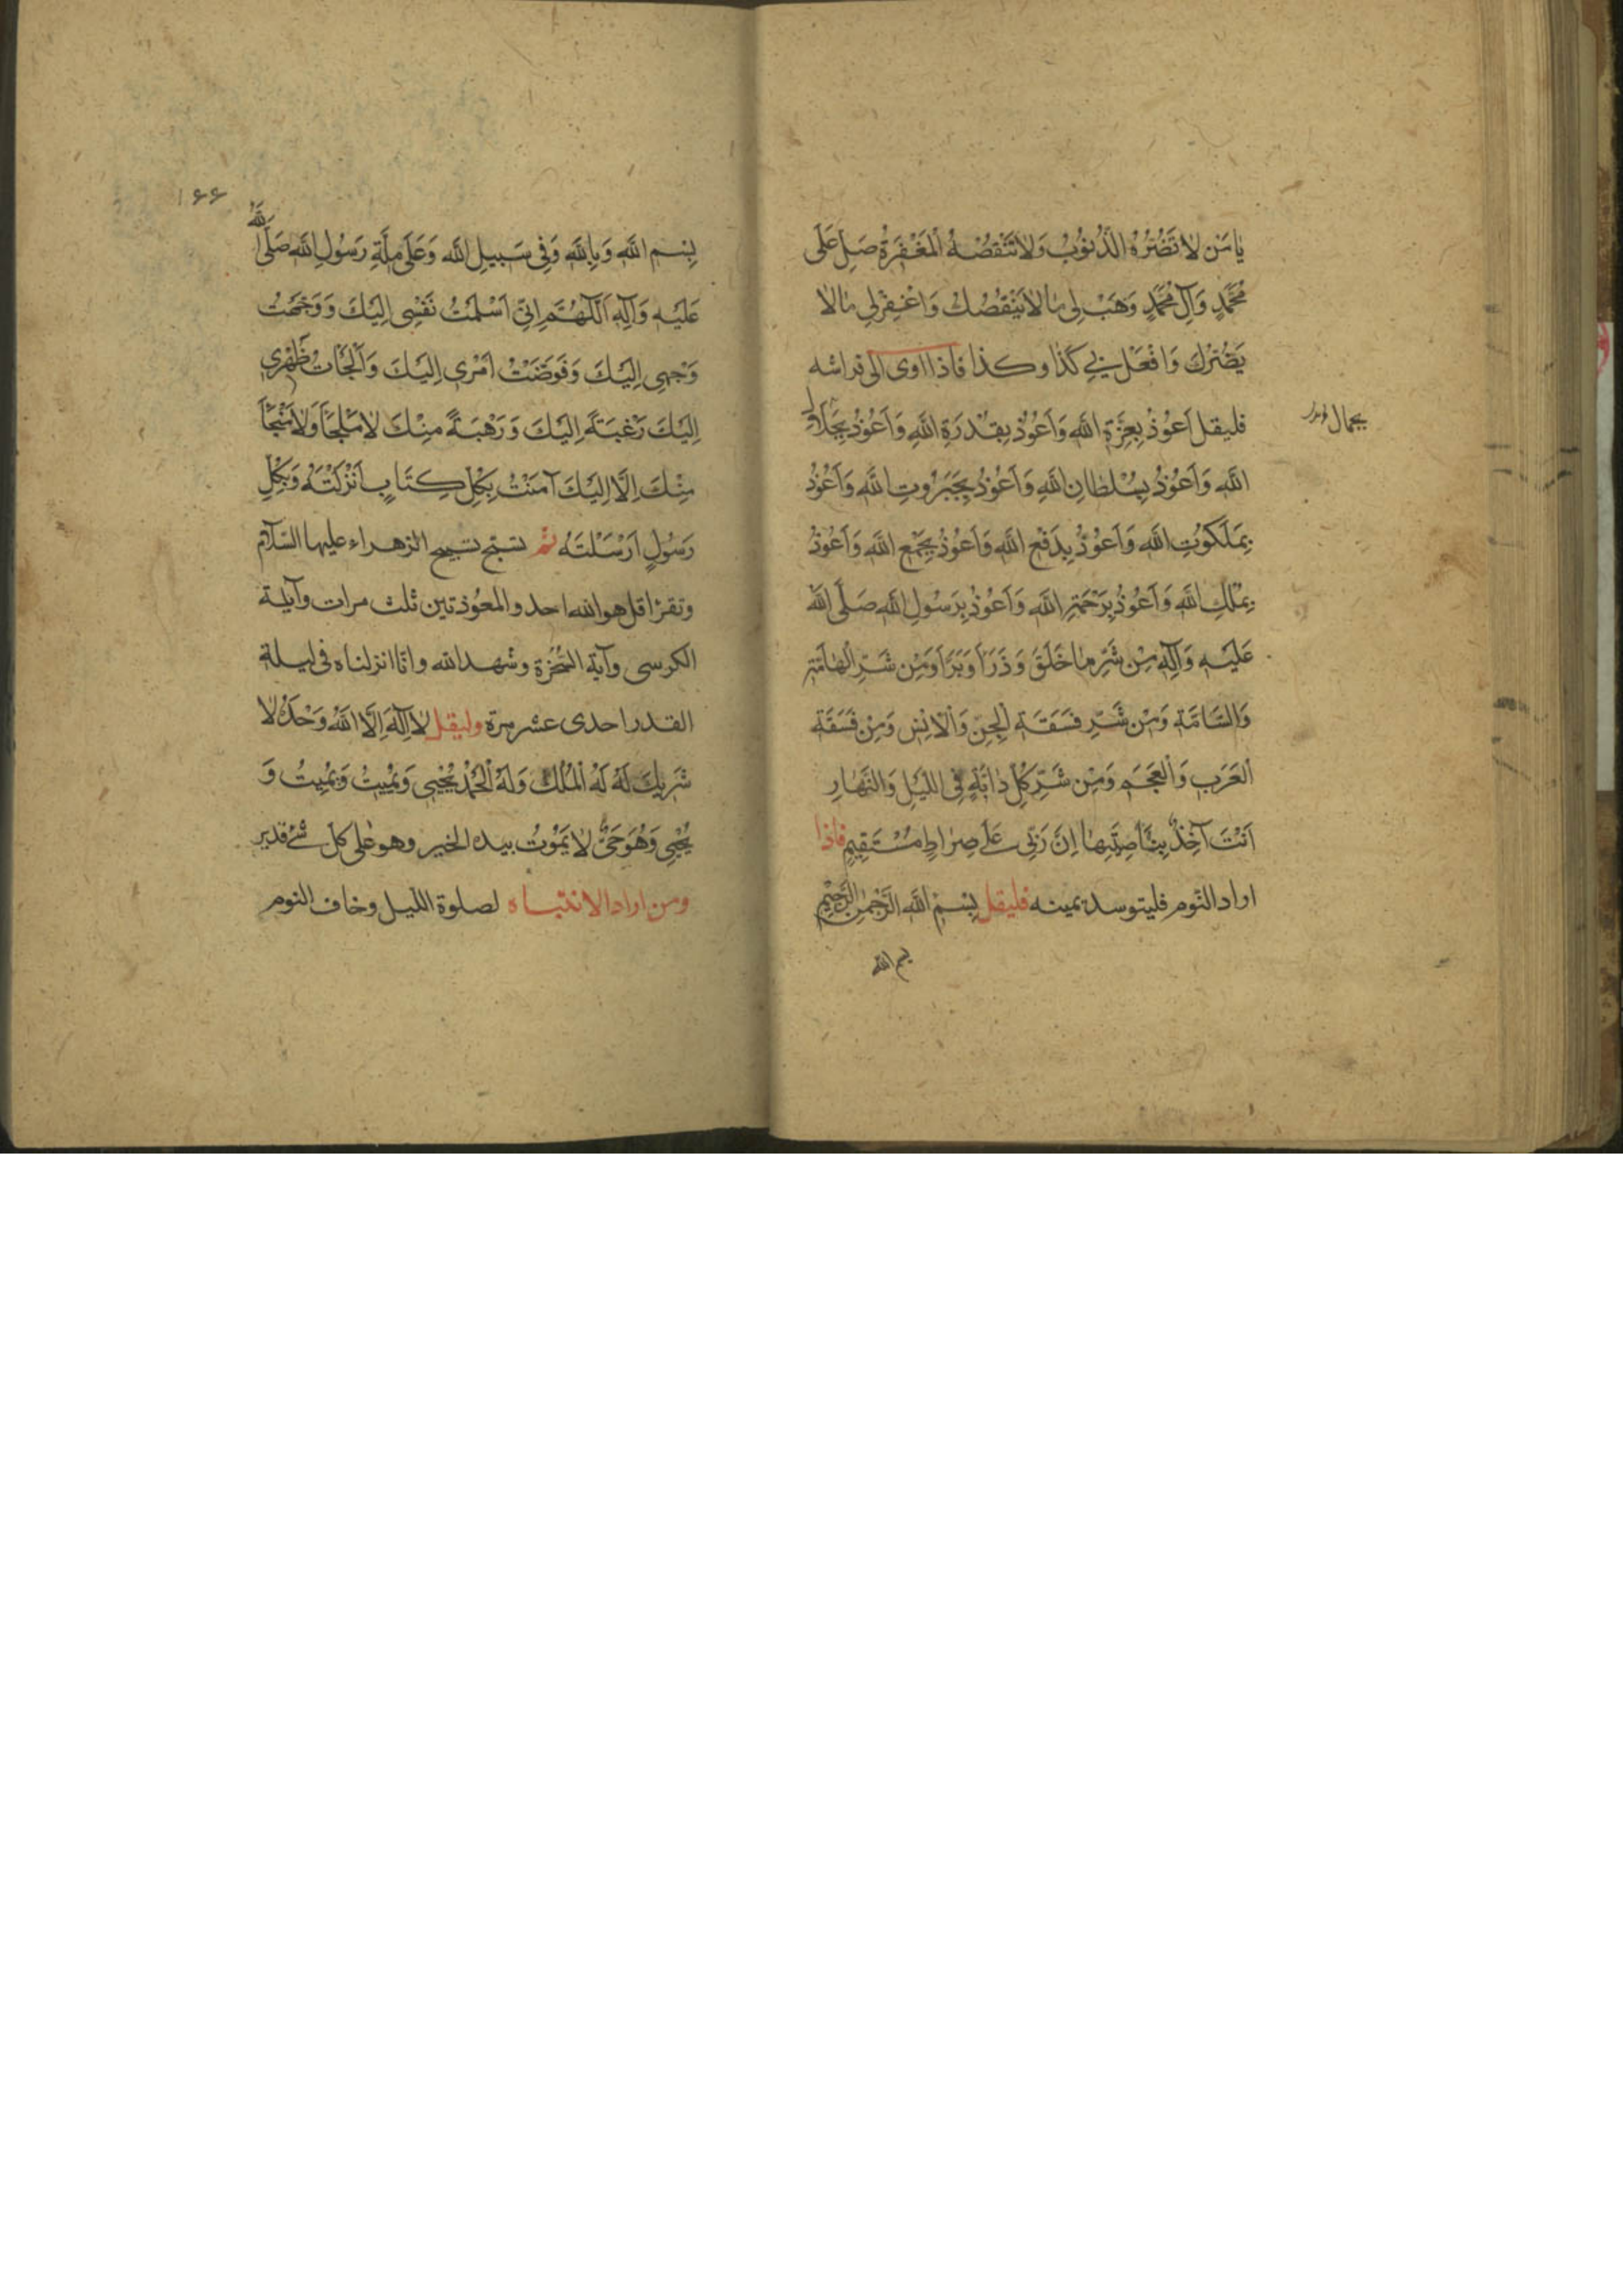 يٰا مَنْ لٰا تَضُرُّهُ الذُّنُوبُ وَلٰا تَنْقُصُهُ الْمَغْفِرَةُ صَلِّ عَلَى
مُحَمَّدٍ وَآلِ مُحَمَّدٍ وَهَبْ لِي مٰا لٰا يَنْقُصُكَ وَاغْفِرْ لِي مٰا لٰا
يَضُرُّكَ وَافْعَلْ بِي كَذٰا وكذا فاذا اوى الى فراشه
فليقل اَعُوذُ بِعِزَّةِ اللهِ وَاَعُوذُ بِقُدْرَةِ اللهِ وَاَعُوذُ بِجَلٰالِ
بجمال
اللهِ وَاَعُوذُ بِسُلْطٰانِ اللهِ وَاَعُوذُ بِجَبَرُوتِ اللهِ وَاَعُوذُ
بِمَلَكُوتِ اللهِ وَاَعُوذُ بِدَفْعِ اللهِ وَاَعُوذُ بِجَمْعِ اللهِ وَاَعُوذُ
بِمُلْكِ اللهِ وَاَعُوذُ بِرَحْمَةِ اللهِ وَاَعُوذُ بِرَسُولِ اللهِ صَلَّى اللهُ
عَلَيْهِ وَآلِهِ مِنْ شَرِّ مٰا خَلَقَ وَذَرَأَ وَبَرَأَ وَمِنْ شَرِّ الْهٰامَّةِ
وَالسّٰامَّةِ وَمِنْ شَرِّ فَسَقَةِ الْجِنِّ وَالْاِنْسِ وَمِنْ فَسَقَةِ
الْعَرَبِ وَالْعَجَمِ وَمِنْ شَرِّ كُلِّ دٰابَّةٍ فِي اللَّيْلِ وَالنَّهٰارِ
اَنْتَ آخِذٌ بِنٰاصِيَتِهٰا اِنَّ رَبِّي عَلٰى صِرٰاطٍ مُسْتَقِيمٍ فاذا
اراد النوم فليتوسد يمينه فليقل بِسْمِ اللهِ الرَّحْمٰنِ الرَّحِيمِ
بسم الله
۱۶۶
بِسْمِ اللهِ وَبِاللهِ وَفِي سَبِيلِ اللهِ وَعَلَى مِلَّةِ رَسُولِ اللهِ صَلَّى اللهُ
عَلَيْهِ وَآلِهِ اَللّٰهُمَّ اِنِّي اَسْلَمْتُ نَفْسِي اِلَيْكَ وَوَجَّهْتُ
وَجْهِي اِلَيْكَ وَفَوَّضْتُ اَمْرِي اِلَيْكَ وَاَلْجَأْتُ ظَهْرِي
اِلَيْكَ رَغْبَةً اِلَيْكَ وَرَهْبَةً مِنْكَ لٰا مَلْجَأَ وَلٰا مَنْجَأَ
مِنْكَ اِلَّا اِلَيْكَ آمَنْتُ بِكُلِّ كِتٰابٍ اَنْزَلْتَهُ وَبِكُلِّ
رَسُولٍ اَرْسَلْتَهُ ثم تسبح تسبيح الزهراء عليها السلام
وتقرأ قل هو الله احد والمعوذتين ثلث مرات وآية
الكرسي وآية السخرة وشهد الله وانا انزلناه في ليلة
القدر احدى عشر مرة وليقل لٰا اِلٰهَ اِلَّا اللهُ وَحْدَهُ لٰا
شَرِيكَ لَهُ لَهُ الْمُلْكُ وَلَهُ الْحَمْدُ يُحْيِي وَيُمِيتُ وَيُمِيتُ وَ
يُحْيِي وَهُوَ حَيٌّ لٰا يَمُوتُ بيده الخير وهو على كل شئ قدير
ومن اراد الانتباه لصلوة الليل وخاف النوم